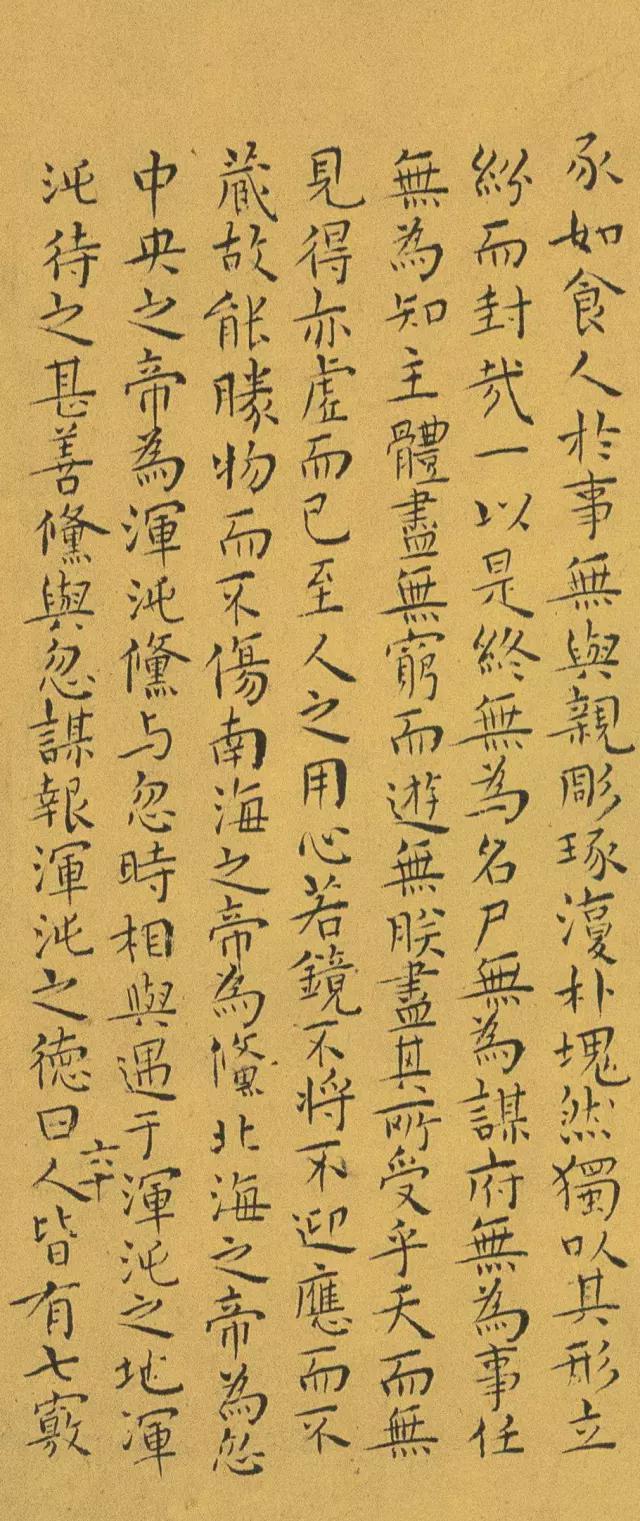 豕如食人於事無與親彫琢復朴塊然獨以其形立
紛而封哉一以是終無為名尸無為謀府無為事任
無為知主體盡無窮而遊無朕盡其所受乎天而無
見得亦虛而已至人之用心若鏡不將不迎應而不
藏故能勝物而不傷南海之帝為儵北海之帝為忽
中央之帝為渾沌儵与忽時相與遇于渾沌之地渾
沌待之甚善儵與忽謀報渾沌之德曰人皆有七竅
六十